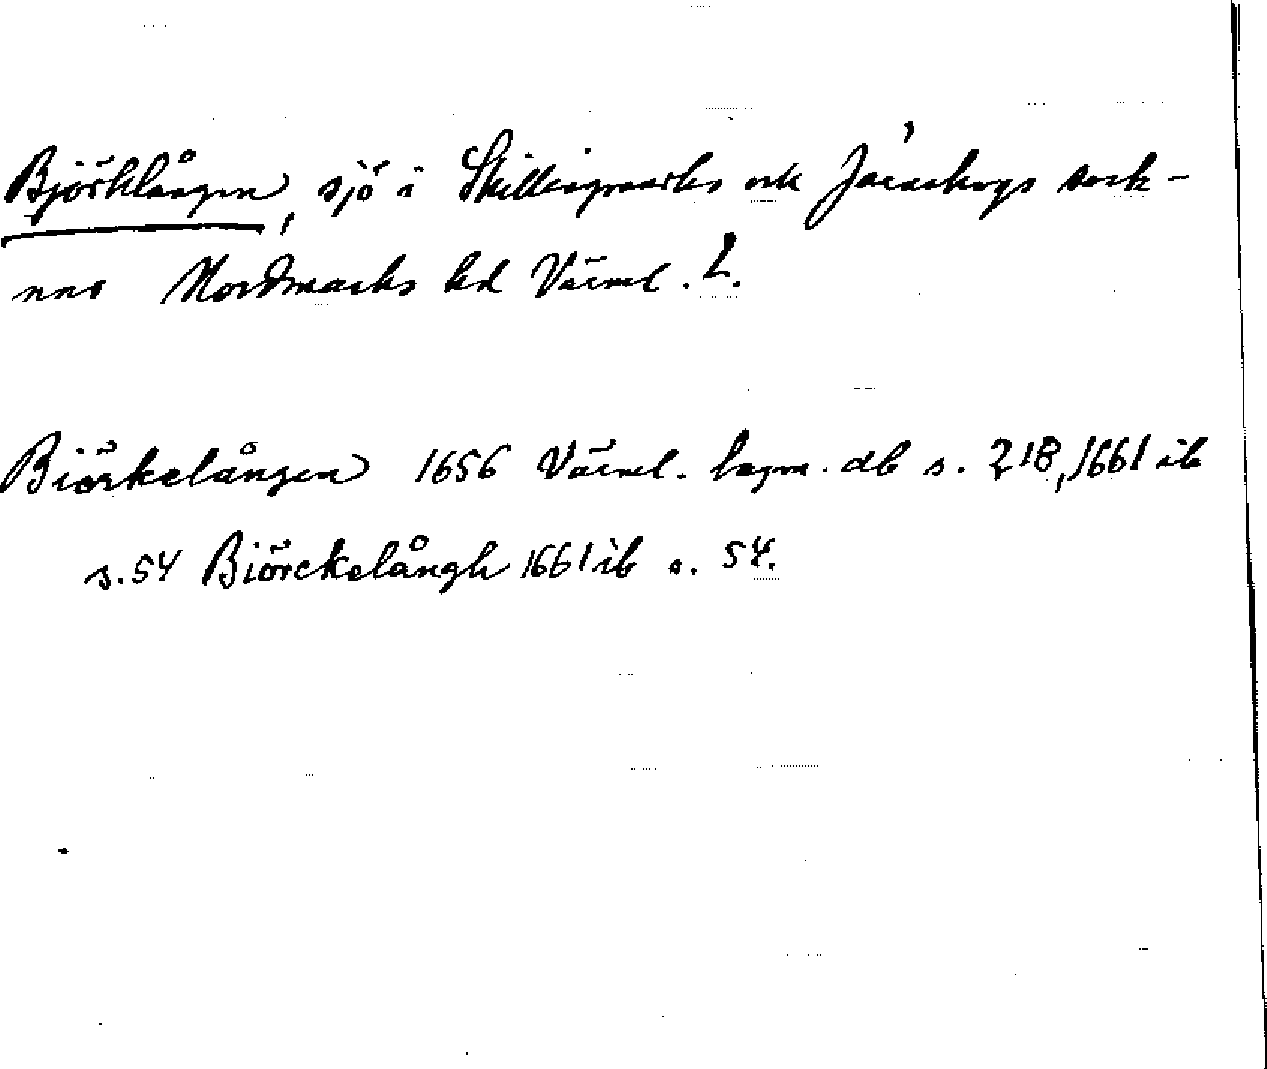 Björklången, sjö i Skillingmarks ock Järnskogs sock-
nar Nordmarks hd Värml. L.
Biörkelången 1656 Värml. lagm. db s. 218, 1661 ib
s. 54 Biörckelångh 1661 ib s. 54.